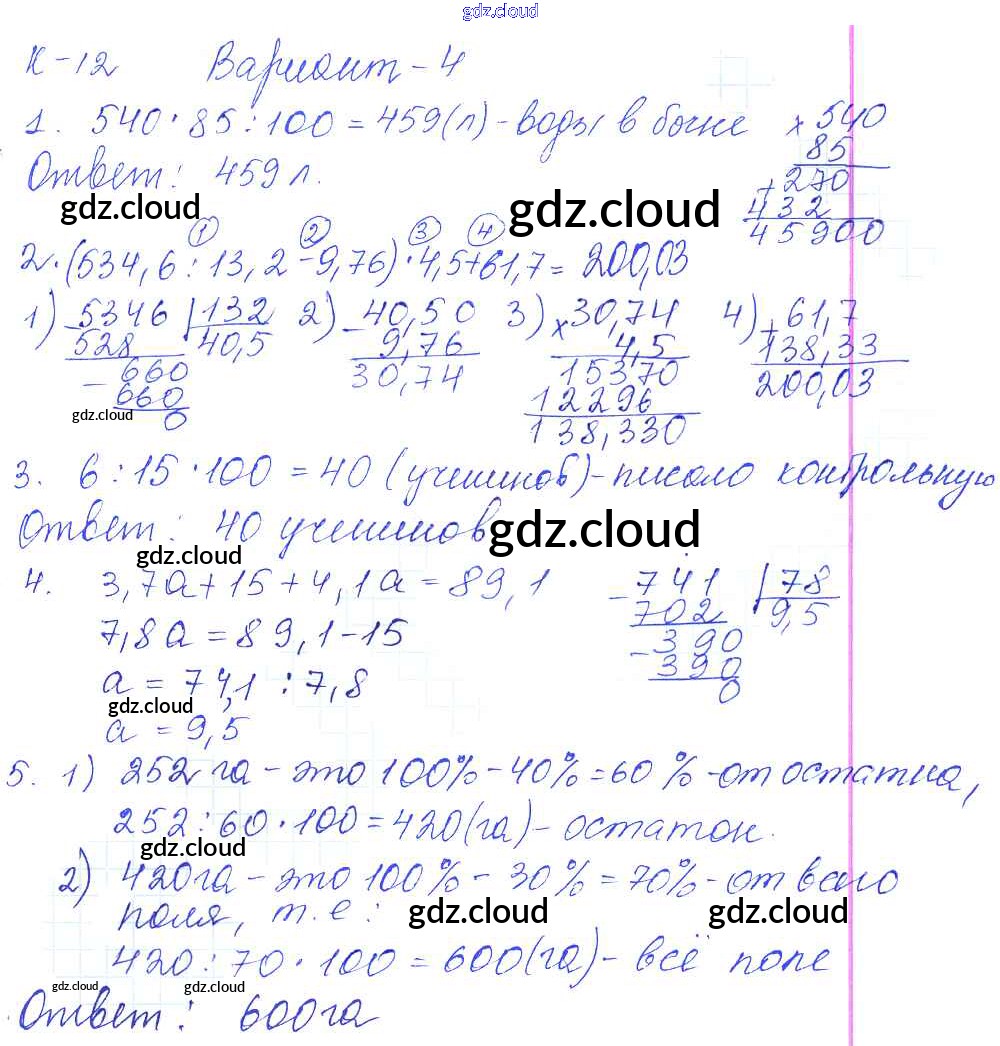 gdz.cloud
К-12 Вариант-4
1. 540·85:100=459(л)-воды в бочке × 540
85
Ответ: 459 л. + 270
gdz.cloud gdz.cloud 432
45900
1 2 3 4
2.(534,6:13,2-9,76)·4,5+61,7=200,03
1) - 5346 | 132 2) - 40,50 3) × 30,74 4) + 61,7
528 40,5 9,76 4,5 138,33
- 660 30,74 15370 200,03
660 12296
gdz.cloud 0 138,330
3. 6:15·100=40(учеников)-писало контрольную
Ответ: 40 учеников gdz.cloud
gdz.cloud
4. 3,7a+15+4,1a=89,1 - 741 | 78
702 9,5
7,8a=89,1-15 - 390
390
a=74,1:7,8 0
gdz.cloud
a=9,5
5. 1) 252 га-это 100%-40%=60%-от остатка,
252:60·100=420(га)-остаток.
gdz.cloud
2) 420га-это 100%-30%=70%-от всего
поля, т.е: gdz.cloud gdz.cloud
420:70·100=600(га)-всё поле
gdz.cloud gdz.cloud
Ответ: 600га